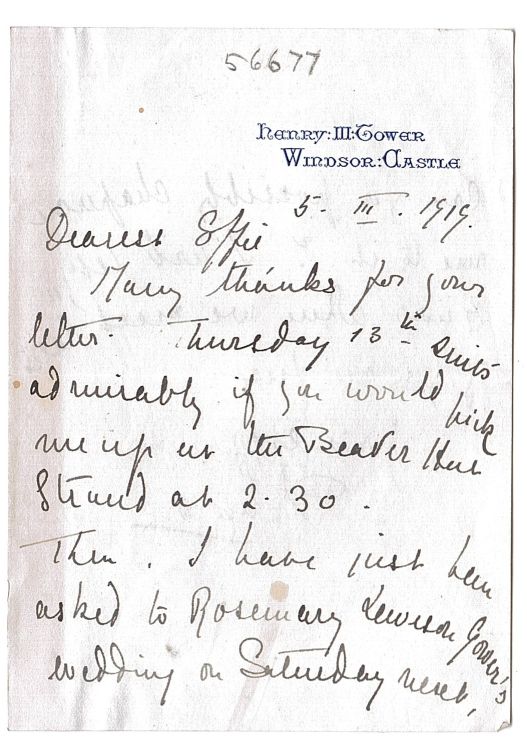 56677
Henry:III:Tower
Windsor:Castle
5. III. 1919.
Dearest Effie
Many thanks for your
letter. Thursday 13th suits
admirably if you would pick
me up at the Beaver Hut
Strand at 2.30.
Then. I have just been
asked to Rosemary Leveson Gower's
wedding on Saturday next,